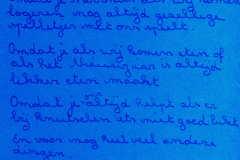 logeren mag altijd gezellige
spelletjes met ons speelt.
Omdat je als wij komen eten of
als het Nieuwjaar is altijd
lekker eten maakt
Omdat je altijd helpt als er
bij knutselen iets niet goed lukt
En voor nog heel veel andere
dingen.